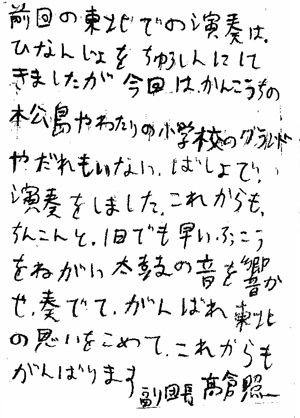 前回の東北での演奏は、
ひなんじょをちゅうしんにして
きましたが今回は、かんこうちの
木公島やわたりの小学校のグランド
やだれもいない、ばしょで、
演奏をしました。これからも、
ちんこんと、1日でも早い、ふっこう
をねがい太鼓の音を響か
せ、奏でて、がんばれ東北
の思いをこめて、これからも
がんばります
副団長 高倉照一